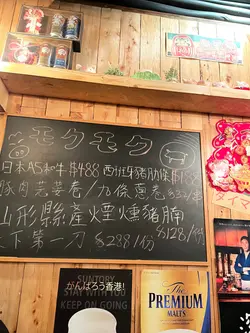 モクモク
日本A5和牛 $488 西班牙豬肋條 $188
豚肉芫荽卷/
山形縣產煙燻豬腩
天下第一刀 $298/份 $128/份
がんばろう香港!
SUNTORY
STAY WITH YOU
KEEP ON GOING
THE
PREMIUM
MALT'S